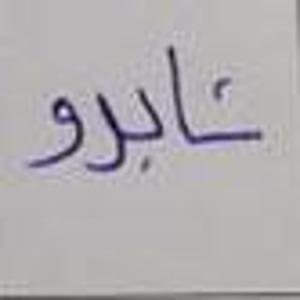 شابرو